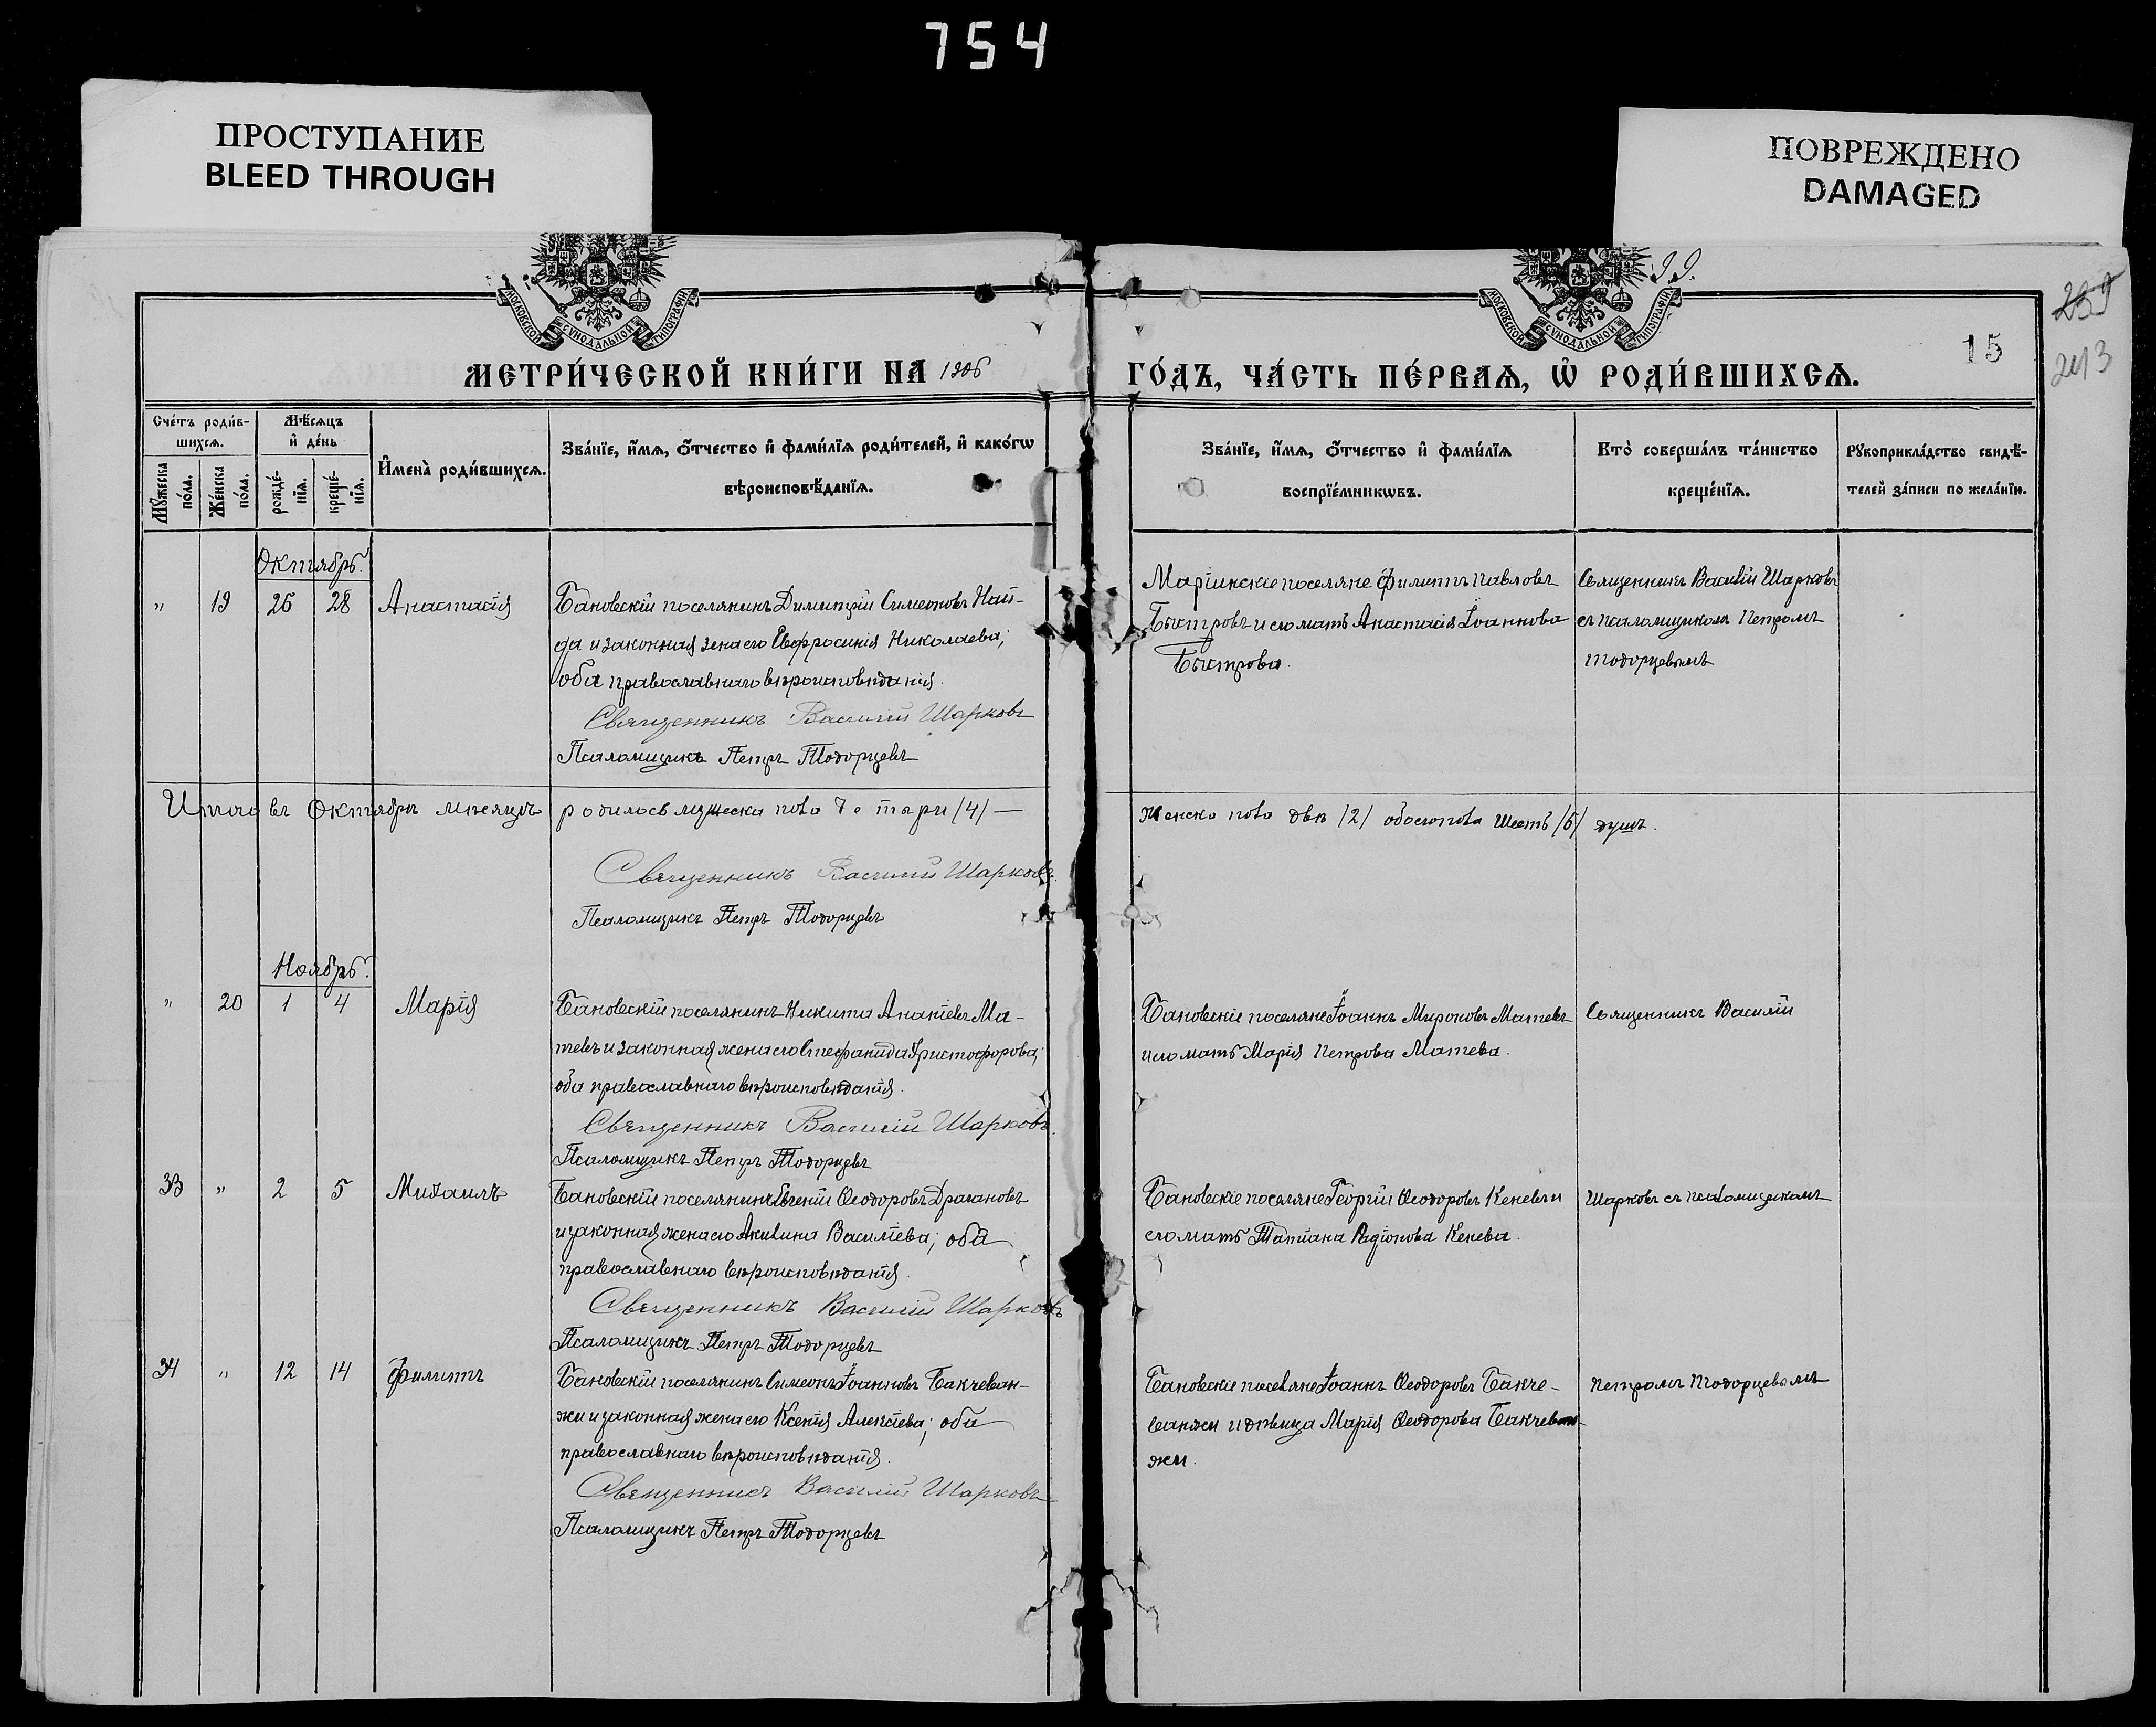 754
ПРОСТУПАНИЕ
BLEED THROUGH
ПОВРЕЖДЕНО
DAMAGED
МОСКОВСКОЙ СѴНОДАЛЬНОЙ ТИПОГРАФІИ
МОСКОВСКОЙ СѴНОДАЛЬНОЙ ТИПОГРАФІИ
99.
239
15
243
МЕТРИ́ЧЕСКОЙ КНИ́ГИ НА 1906
ГО́ДЪ, ЧА́СТЬ ПЕ́РВАѦ, Ѡ҆ РОДИ́ВШИХСѦ.
Сче́тъ роди́в-
шихсѧ.
Мꙋ́жеска по́ла.
Же́нска по́ла.
Мѣ́сѧцъ
и҆ де́нь
рожде́-
нїѧ.
креще́-
нїѧ.
И҆мена̀ роди́вшихсѧ.
Зва́нїе, и҆́мѧ, ѻ҆́тчество и҆ фами́лїѧ роди́телей, и҆ како́гѡ
вѣроисповѣ́данїѧ.
Зва́нїе, и҆́мѧ, ѻ҆́тчество и҆ фами́лїѧ
воспрїе́мникѡвъ.
Кто̀ соверша́лъ та́инство
креще́нїѧ.
Рꙋкоприкла́дство свидѣ́-
телей за́писи по жела́нїю.
Октябрь.
" 19 26 28 Анастасія
Бановскій поселянинъ Димитрій Симеоновъ Най-
да и законная жена его Евфросинія Николаева;
оба православнаго вѣроисповѣданія.
Священникъ Василій Шарковъ
Псаломщикъ Петръ Тодорцевъ
Маріинскіе поселяне Филиппъ Павловъ
Быстровъ и его мать Анастасія Іоаннова
Быстрова.
Священникъ Василій Шарковъ
съ псаломщикомъ Петромъ
Тодорцевымъ
Итого въ Октябрѣ мѣсяцѣ родилось мужеска пола четыри /4/ —
женска пола двѣ /2/ обоего пола шесть /6/ душъ.
Священникъ Василій Шарковъ.
Псаломщикъ Петръ Тодорцевъ
Ноябрь.
" 20 1 4 Марія
Бановскій поселянинъ Никита Ананіевъ Ма-
тевъ и законная жена его Стефанида Христофорова;
оба православнаго вѣроисповѣданія.
Священникъ Василій Шарковъ.
Псаломщикъ Петръ Тодорцевъ
Бановскіе поселяне Іоаннъ Мироновъ Матевъ
и его мать Марія Петрова Матева.
Священникъ Василій
33 " 2 5 Михаилъ
Бановскій поселянинъ Евгеній Ѳеодоровъ Драгановъ
и законная жена его Акилина Василіева; оба
православнаго вѣроисповѣданія.
Священникъ Василій Шарковъ
Псаломщикъ Петръ Тодорцевъ
Бановскіе поселяне Георгій Ѳеодоровъ Кеневъ и
его мать Татіана Родіонова Кенева.
Шарковъ съ псаломщикомъ
34 " 12 14 Филиппъ
Бановскій поселянинъ Симеонъ Іоанновъ Бакчеван-
жи и законная жена его Ксенія Алексіева; оба
православнаго вѣроисповѣданія.
Священникъ Василій Шарковъ
Псаломщикъ Петръ Тодорцевъ
Бановскіе поселяне Іоаннъ Ѳеодоровъ Бакче-
ванжи и дѣвица Марія Ѳеодорова Бакчеван-
жи.
Петромъ Тодорцевымъ